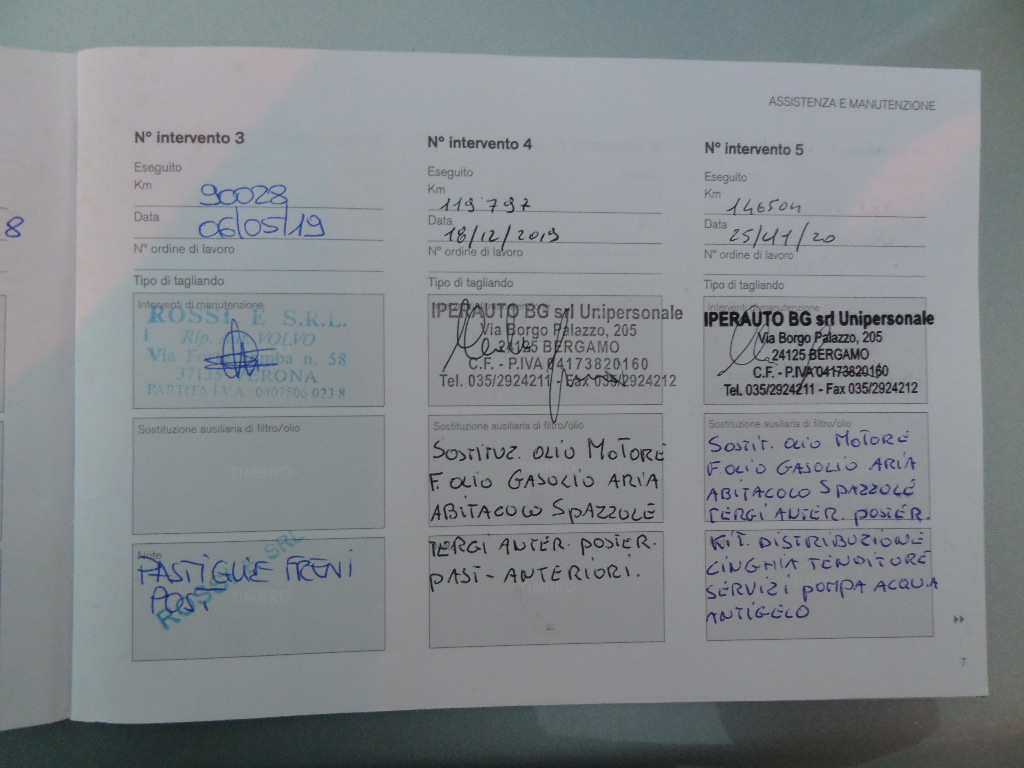 8
ASSISTENZA E MANUTENZIONE
N° intervento 3
Eseguito
Km 90028
Data 06/05/19
N° ordine di lavoro
Tipo di tagliando
Interventi di manutenzione
ROSSI E S.R.L.
Rip. VOLVO
Via n. 58
VERONA
PARTITA I.V.A. 0407506 023 8
Sostituzione ausiliaria di filtro/olio
TIMBRO
Note
PASTIGLIE FRENI
POST
TIMBRO
SRL
N° intervento 4
Eseguito
Km 119797
Data 18/12/2019
N° ordine di lavoro
Tipo di tagliando
IPERAUTO BG srl Unipersonale
Via Borgo Palazzo, 205
24125 BERGAMO
C.F. - P.IVA 04173820160
Tel. 035/2924211 - Fax 035/2924212
Sostituzione ausiliaria di filtro/olio
SOSTITUZ. OLIO MOTORE
F. OLIO GASOLIO ARIA
ABITACOLO SPAZZOLE
TERGI ANTER. POSTER.
PAST- ANTERIORI.
N° intervento 5
Eseguito
Km 146504
Data 25/11/20
N° ordine di lavoro
Tipo di tagliando
Interventi di manutenzione
IPERAUTO BG srl Unipersonale
Via Borgo Palazzo, 205
24125 BERGAMO
C.F. - P.IVA 04173820160
Tel. 035/2924211 - Fax 035/2924212
Sostituzione ausiliaria di filtro/olio
SOSTIT. OLIO MOTORE
F. OLIO GASOLIO ARIA
ABITACOLO SPAZZOLE
TERGI ANTER. POSTER.
KIT. DISTRIBUZIONE
CINGHIA TENDITORE
SERVIZI POMPA ACQUA
ANTIGELO
7